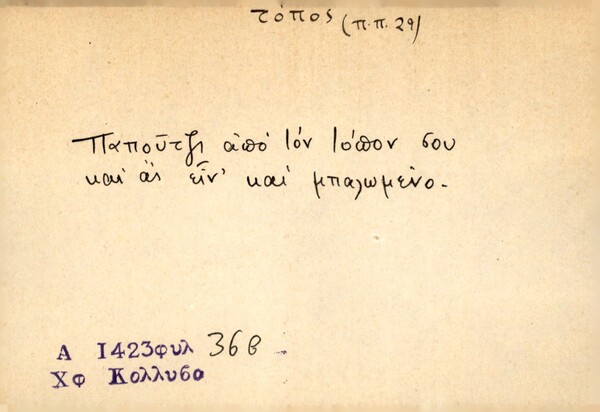 τόπος (π.π. 29)
Παποῦτζι ἀπὸ τόν τόπον σου
καί ἄς εἶν' καί μπαλωμένο.
Α 1423φυλ 36 β
Χφ Κολλυβα